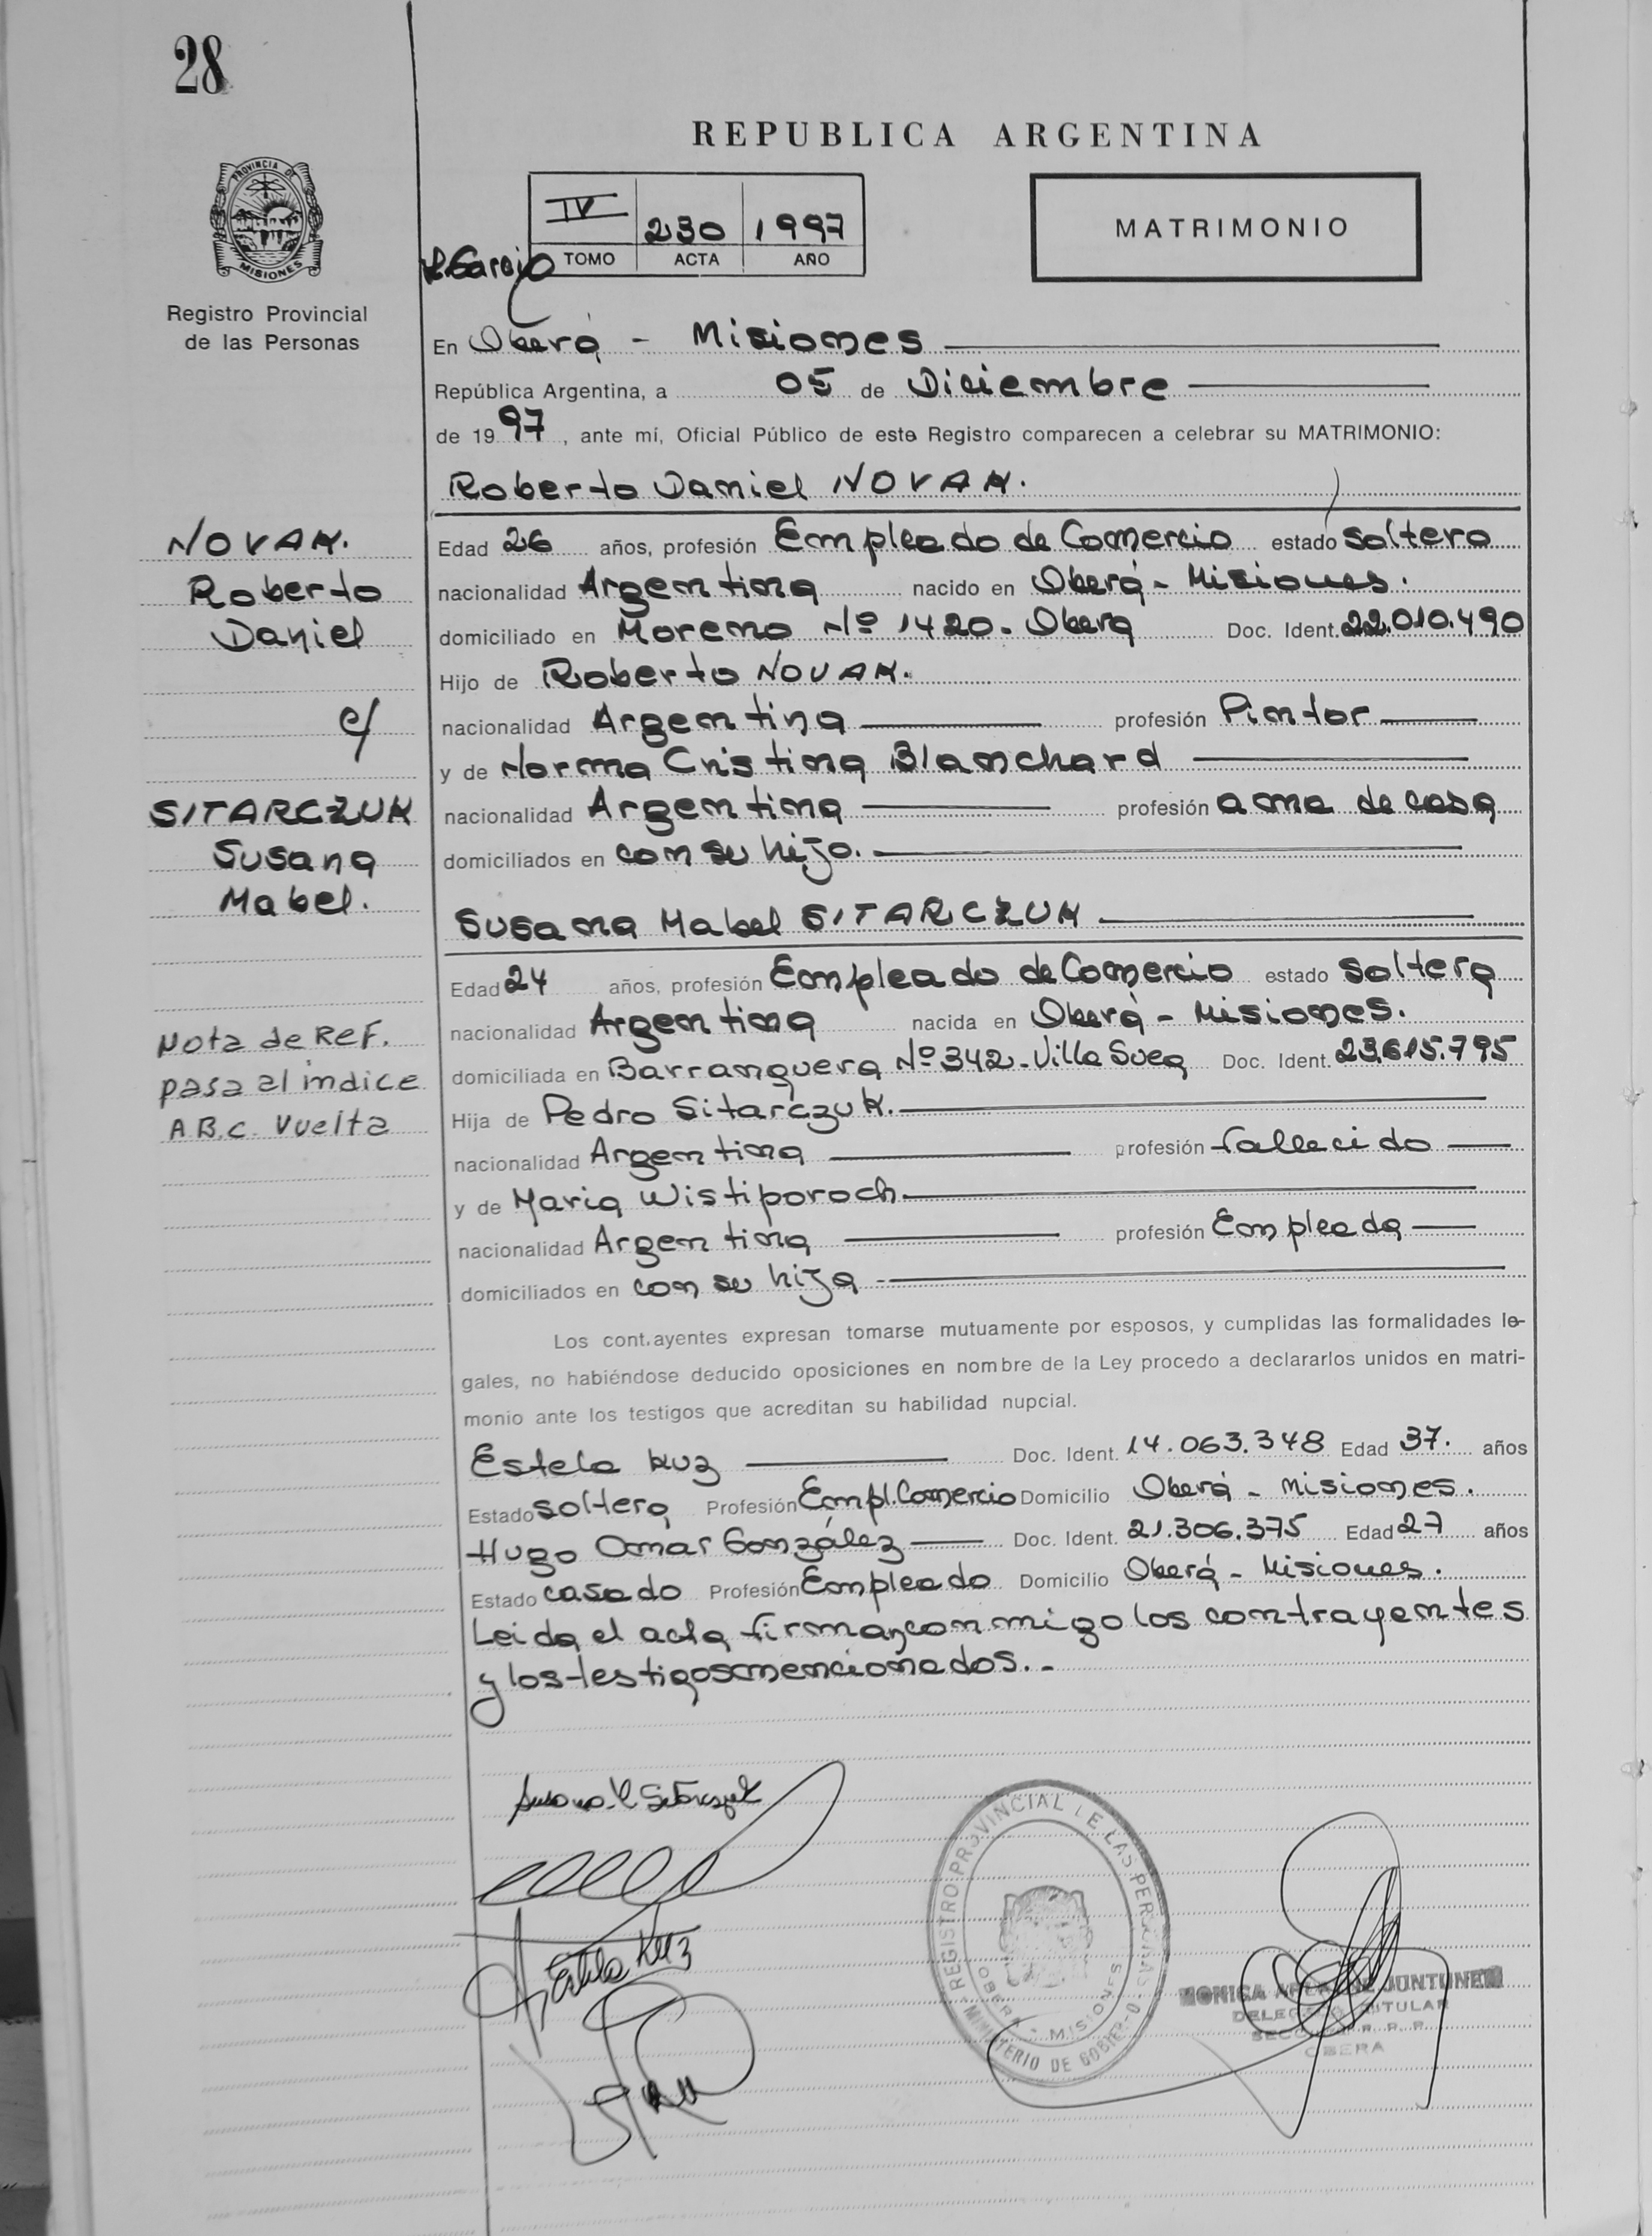 28
REPUBLICA ARGENTINA
PROVINCIA DE
MISIONES
IV 230 1997
TOMO ACTA AÑO
MATRIMONIO
Registro Provincial
de las Personas
En Oberá - Misiones
República Argentina, a 05 de Diciembre
de 1997, ante mí, Oficial Público de este Registro comparecen a celebrar su MATRIMONIO:
Roberto Daniel NOVAK.
NOVAK.
Roberto
Daniel
c/
SITARCZUK
Susana
Mabel.
Edad 26 años, profesión Empleado de Comercio estado soltero
nacionalidad Argentina nacido en Oberá - Misiones.
domiciliado en Moreno Nº 1420. Oberá Doc. Ident. 22.010.490
Hijo de Roberto NOVAK.
nacionalidad Argentina profesión Pintor
y de Norma Cristina Blanchard
nacionalidad Argentina profesión ama de casa
domiciliados en con su hijo.
Susana Mabel SITARCZUK
Edad 24 años, profesión Empleado de Comercio estado soltera
nacionalidad Argentina nacida en Oberá - Misiones.
domiciliada en Barranquera Nº 342 - Villa Sueq Doc. Ident. 23.615.795
Hija de Pedro Sitarczuk.
nacionalidad Argentina profesión fallecido
y de Maria Wistiporoch
nacionalidad Argentina profesión Empleada
domiciliados en con su hija
Nota de Ref.
pasa al indice
A.B.C. Vuelta
Los cont.ayentes expresan tomarse mutuamente por esposos, y cumplidas las formalidades le-
gales, no habiéndose deducido oposiciones en nombre de la Ley procedo a declararlos unidos en matri-
monio ante los testigos que acreditan su habilidad nupcial.
Estela Kuz Doc. Ident. 14.063.348 Edad 37. años
Estado soltera Profesión Empl. Comercio Domicilio Oberá - Misiones.
Hugo Omar González Doc. Ident. 21.306.375 Edad 27 años
Estado casado Profesión Empleado Domicilio Oberá - Misiones.
Leida el acta, firman conmigo los contrayentes
y los testigos mencionados.-
Estela Kuz
REGISTRO PROVINCIAL DE LAS PERSONAS
OBERA - MISIONES
MINISTERIO DE GOBIERNO
MONICA DE JUNTUNEN
DELEGADA TITULAR
OBERA